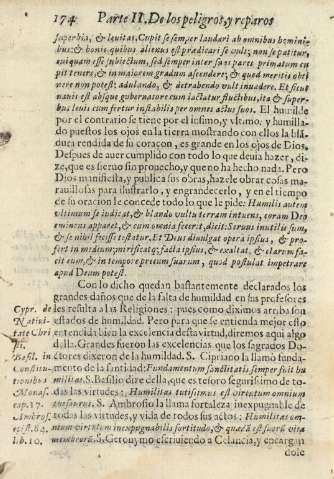 174 Parte II. De los peligros, y reparos
superbia, & leuitas. Cupit se semper laudari ab omnibus homini-
bus: & bonis quibus alienus est prædicari se vult; non se patitur
cuiquam esse subiectum, sed semper inter suos pares primatum cu
pit tenere, & in maiorem gradum ascendere; & quod meritis obti
nere non potest; adulando, & detrahendo vult inuadere. Et sicut
nauis est absque gubernatore cum iactatur fluctibus, ita & super-
bus leuis cum fertur instabilis per omnes actus suos. El humilde
por el contrario se tiene por el infimo, y vltimo, y humilla-
do puestos los ojos en la tierra mostrando con ellos la blã-
dura rendida de su coraçon, es grande en los ojos de Dios.
Despues de auer cumplido con todo lo que deuia hazer, di-
ze, que es sieruo sin prouecho, y que no ha hecho nada. Pero
Dios manifiesta, y publica sus obras, haze le obrar cosas ma-
rauillosas para ilustrarlo, y engrandecerlo, y en el tiempo
de su oracion le concede todo lo que le pide: Humilis autem
vltimum se iudicat, & blando vultu terram intuens, coram Deo
eminens apparet, & cum omnia fecerit, dicit: Seruus inutilis sum,
& se nihil fecisse testatur. Et Deus diuulgat opera ipsius, & pro-
fert in medium; mirificatq; facta ipsius, & exaltat, & clarum fa-
cit eum, & in tempore precum suarum, quod postulat impetrare
apud Deum potest.
Con lo dicho quedan bastantemente declarados los
grandes daños que de la falta de humildad en sus professores
les resulta a las Religiones: pues como diximos arriba son
Cypr. de estados de humildad. Pero para que se entienda mejor esto
Natiui- entendida bien la excelencia desta virtud, diremos aqui algo
tate Chri della. Grandes fueron las excelencias que los sagrados Do-
sti.
Basil. in ctores dixeron de la humildad. S. Cipriano la llamò funda-
Constitu- mento de la santidad: Fundamentum sanctitatis semper fuit hu
tionibus militas. S. Basilio dize della, que es tesoro segurissimo de to-
Monas. das las virtudes: Humilitas tutissimus est virtutum omnium
cap. 17. thesaurus. S. Ambrosio la llama fortaleza inexpugnable de
Ambros. todas las virtudes, y vida de todos sus actos: Humilitas om-
epist. 84. nium virtutum inexpugnabilis fortitudo, & quæda est suarũ vita
lib. 10. S. Geronymo escriuiendo a Celancia, y encargan
dole